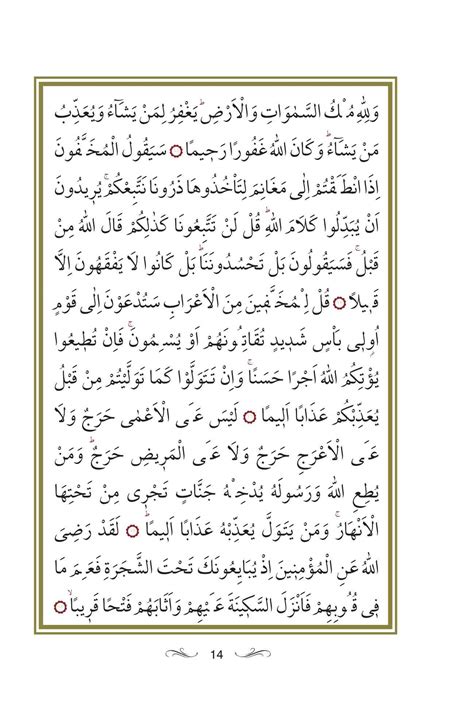 وَلِلّٰهِ مُلْكُ السَّمٰوَاتِ وَالْاَرْضِۜ يَغْفِرُ لِمَنْ يَشَٓاءُ وَيُعَذِّبُ
مَنْ يَشَٓاءُۜ وَكَانَ اللّٰهُ غَفُورًا رَحٖيمًا ۝ سَيَقُولُ الْمُخَلَّفُونَ
اِذَا انْطَلَقْتُمْ اِلٰى مَغَانِمَ لِتَأْخُذُوهَا ذَرُونَا نَتَّبِعْكُمْۚ يُرٖيدُونَ
اَنْ يُبَدِّلُوا كَلَامَ اللّٰهِۜ قُلْ لَنْ تَتَّبِعُونَا كَذٰلِكُمْ قَالَ اللّٰهُ مِنْ
قَبْلُۚ فَسَيَقُولُونَ بَلْ تَحْسُدُونَنَاۜ بَلْ كَانُوا لَا يَفْقَهُونَ اِلَّا
قَلٖيلًا ۝ قُلْ لِلْمُخَلَّفٖينَ مِنَ الْاَعْرَابِ سَتُدْعَوْنَ اِلٰى قَوْمٍ
اُولٖى بَأْسٍ شَدٖيدٍ تُقَاتِلُونَهُمْ اَوْ يُسْلِمُونَۚ فَاِنْ تُطٖيعُوا
يُؤْتِكُمُ اللّٰهُ اَجْرًا حَسَنًاۚ وَاِنْ تَتَوَلَّوْا كَمَا تَوَلَّيْتُمْ مِنْ قَبْلُ
يُعَذِّبْكُمْ عَذَابًا اَلٖيمًا ۝ لَيْسَ عَلَى الْاَعْمٰى حَرَجٌ وَلَا
عَلَى الْاَعْرَجِ حَرَجٌ وَلَا عَلَى الْمَرٖيضِ حَرَجٌۜ وَمَنْ
يُطِعِ اللّٰهَ وَرَسُولَهُ يُدْخِلْهُ جَنَّاتٍ تَجْرٖى مِنْ تَحْتِهَا
الْاَنْهَارُۚ وَمَنْ يَتَوَلَّ يُعَذِّبْهُ عَذَابًا اَلٖيمًاۜ ۝ لَقَدْ رَضِىَ
اللّٰهُ عَنِ الْمُؤْمِنٖينَ اِذْ يُبَايِعُونَكَ تَحْتَ الشَّجَرَةِ فَعَلِمَ مَا
فٖى قُلُوبِهِمْ فَاَنْزَلَ السَّكٖينَةَ عَلَيْهِمْ وَاَثَابَهُمْ فَتْحًا قَرٖيبًاۙ ۝
14